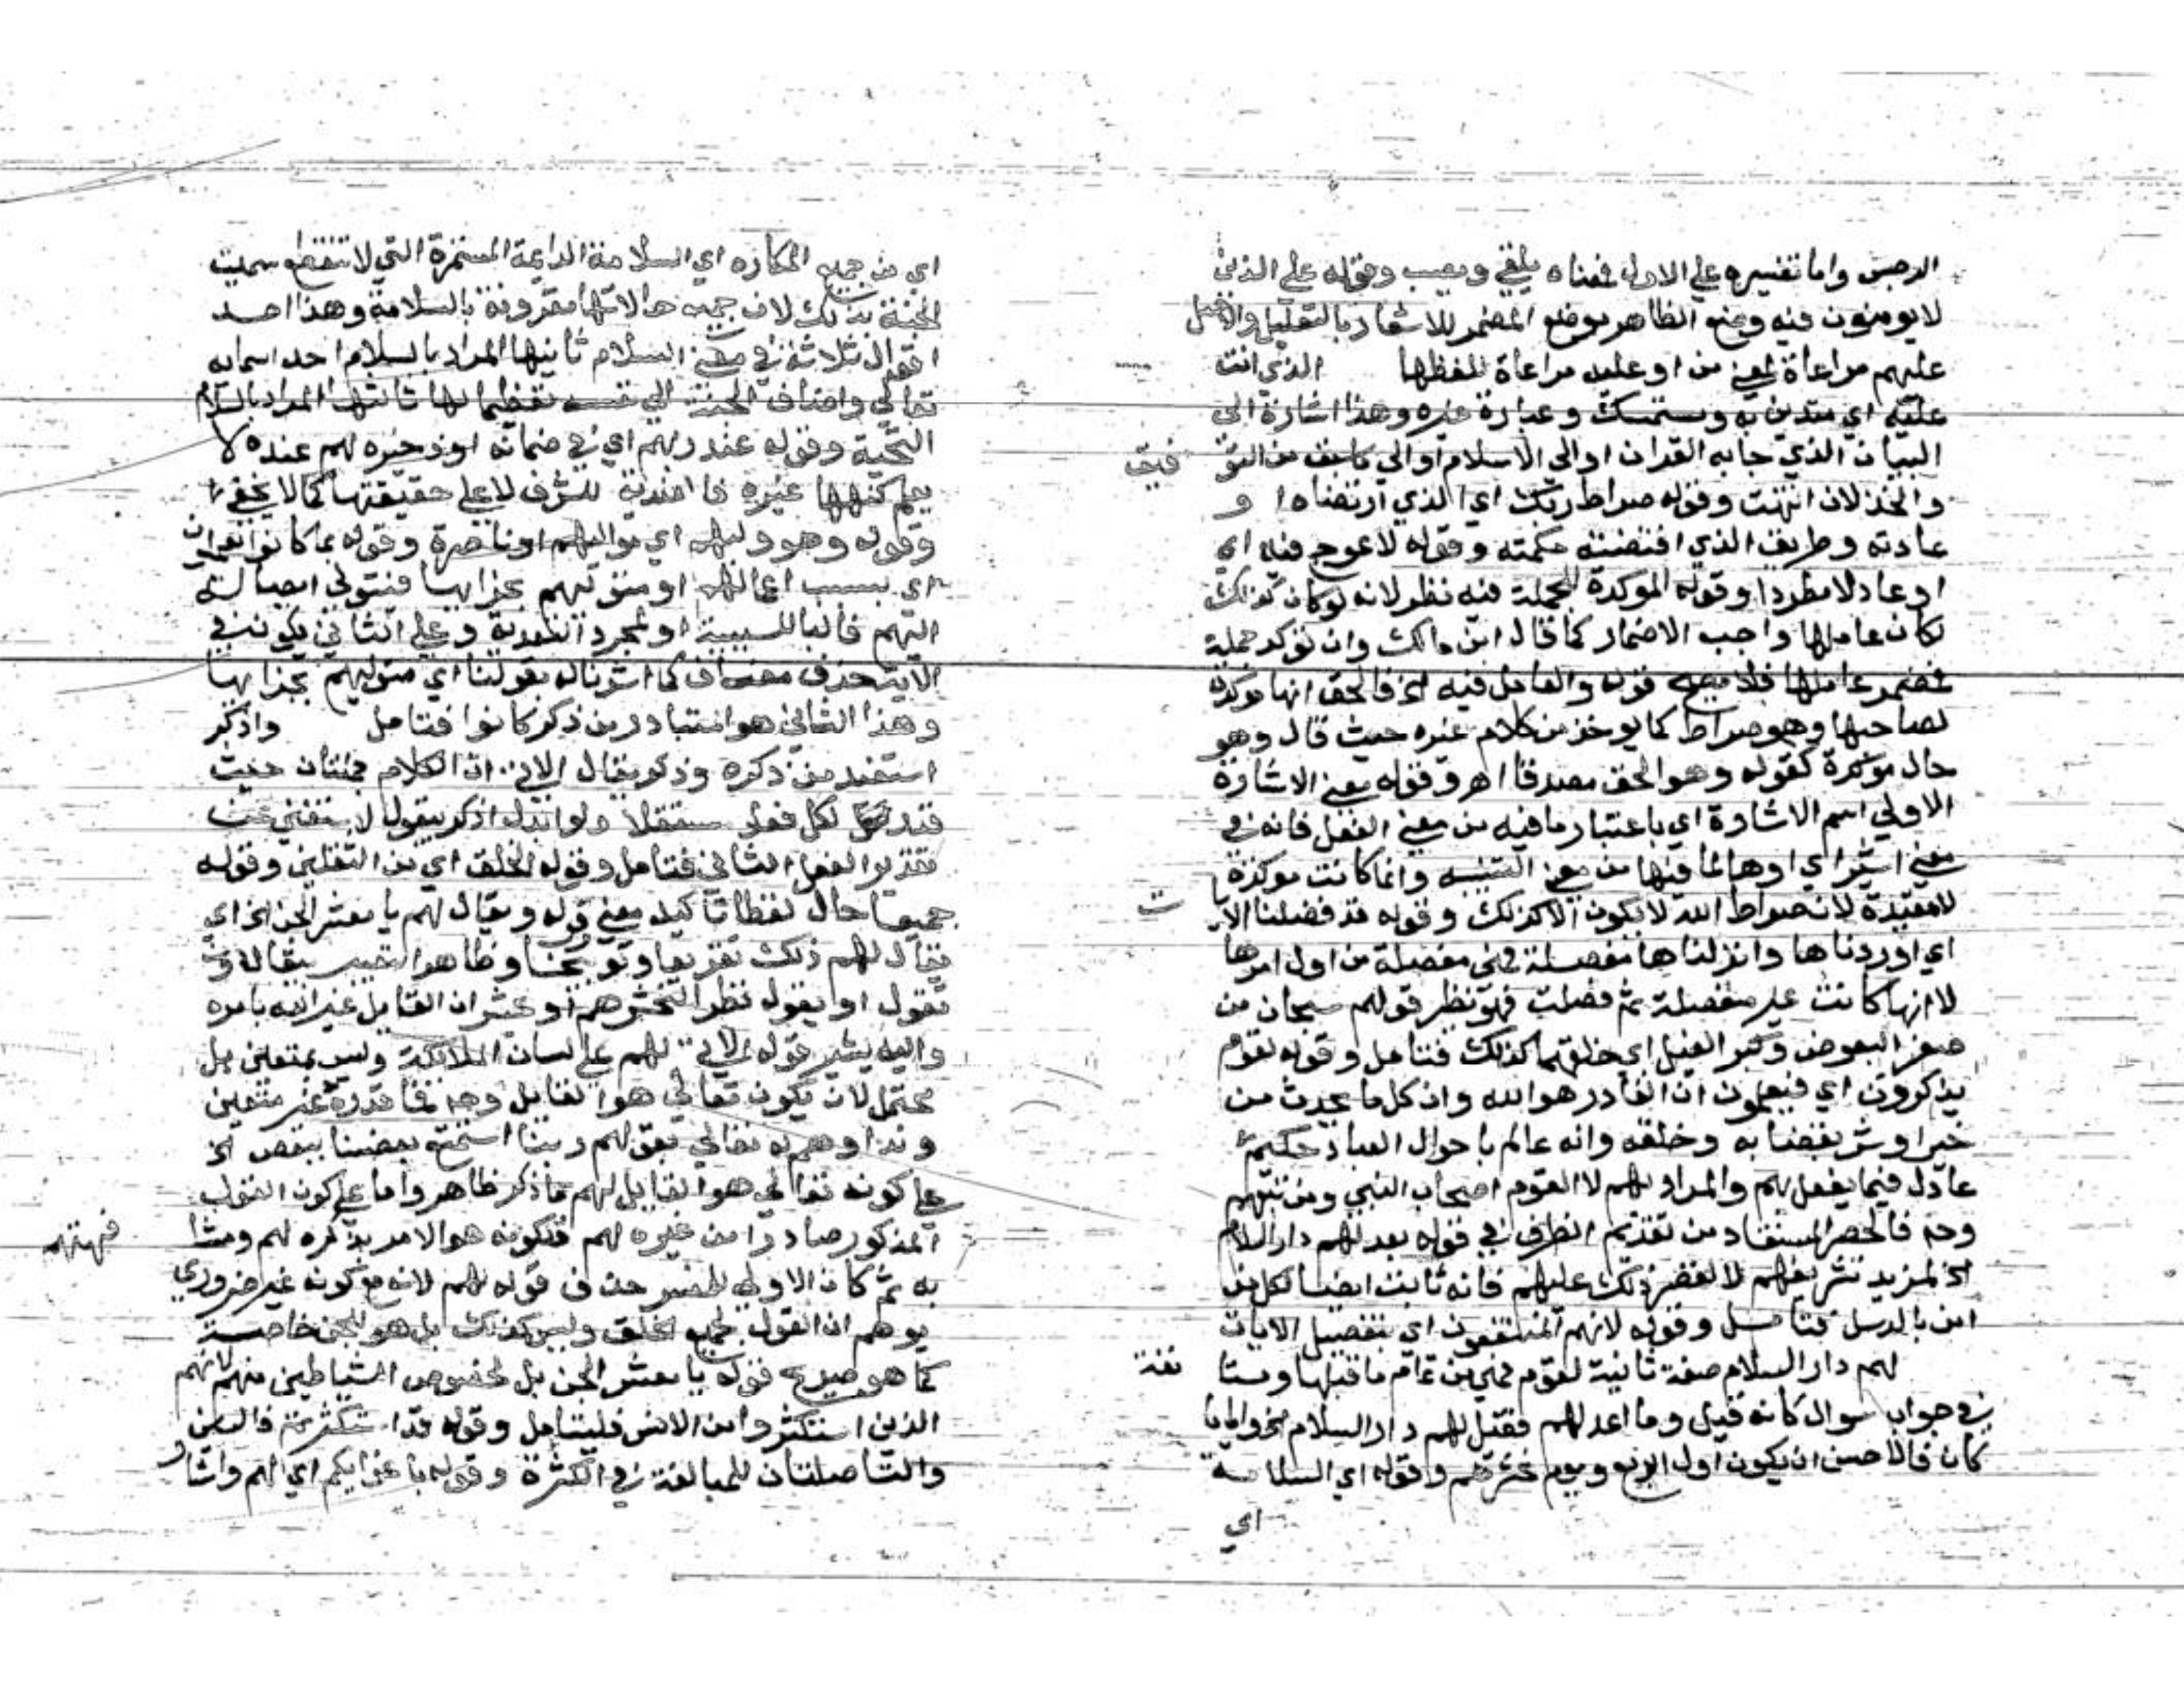 الرجس واما تفسيره على الاول فمعناه يلقي ويصب وقوله على الذين
لايومنون فيه وضع الظاهر موضع المضمر للاشعار بالتعليل والاصل
عليهم مراعاة لمعنى من او عليه مراعاة للفظها الذي انت
عليه اي متدين به ومستمسك وعبارة غيره وهذا اشارة الى
البيان الذي جابه القران او الي الاسلام او الي ماسبق من التو فيق
والخذلان انتهت وقوله صراط ربك اي الذي ارتضاه او
عادته وطريقه الذي اقتضته حكمته وقوله لاعوج فيه اي
او عادلا مطردا وقوله الموكدة للجملة فيه نظر لانه لوكان كذلك
لكان عاملها واجب الاضمار كما قال ابن مالك وان توكد جملة
فمضمر عاملها فلا يصح قوله والعامل فيه الخ فالحق انها موكدة
لصاحبها وهو صراط كما يوخذ من كلام غيره حيث قال وهو
حال موكدة كقوله وهو الحق مصدقا اهـ وقوله معنى الاشارة
الاولى اسم الاشارة اي باعتبار مافيه من معنى الفعل فانه في
معنى اشير اي او ها لما فيها من معنى التنبيه وانما كانت موكدة
لامقيدة لان صراط الله لايكون الاكذلك وقوله قد فصلنا الايا ت
اي اوردناها وانزلناها مفصلة فهي مفصلة من اول امرها
لا انها كانت غير مفصلة ثم فصلت فهو نظير قولهم سبحان من
صغر البعوض وكبر الفيل اي خلقهما كذلك فتامل وقوله لقوم
يذكرون اي فيعلمون ان القادر هو الله وان كل ما يحدث من
خير او شر بقضا به وخلقه وانه عالم باحوال العباد حكيم
عادل فيما يفعل بهم والمراد بهم لا القوم اصحاب النبي ومن تبعهم
وح فالحصر المستفاد من تقديم الظرف في قوله بعد لهم دار السلام
الخ لمزيد تشريفهم لا لقصر ذلك عليهم فانه ثابت ايضا لكل من
امن بالرسل فتامل وقوله لانهم المنتفعون اي بتفصيل الايات
لهم دار السلام صفة ثانية لقوم فهي من تمام ما قبلها ومستا نفة
في جواب سوال كانه قيل وما اعد لهم فقيل لهم دار السلام
كان فالاحسن ان يكون اول الربع ويوم نحشرهم وقوله اي السلامة
اي
اي من جميع المكاره اي السلامة الدايمة المستمرة التي لاتنقطع سميت
الجنة بذلك لان جميع حالاتها مقرونة بالسلامة وهذا احد
اقوال ثلاثة في معنى السلام ثانيها المراد بالسلام احد اسمايه
تعالى واضاف الجنة الي نفسه تعظيما لها ثالثها المراد بالسلام
التحية وقوله عند ربهم اي في ضمانه او ذخيره لهم عنده لا
يعلم كنهها غيره فالعندية للشرف لاعلى حقيقتها كما لا يخفى
وقوله وهو وليهم اي مواليهم او ناصرهم وقوله بما كانوا يعملون
اي بسبب اعمالهم او متوليهم بجزايها فيتولى ايصاله
اليهم فالبا للسببية او لمجرد التعدية وعلى الثاني يكون في
الاية حذف مضاف كما اشرنا له بقولنا اي متوليهم بجزايها
وهذا الثاني هو المتبادر من ذكر كانوا فتامل واذكر
استفيد من ذكره وذكر يقال الاتي ان الكلام جملتان حيث
قدر لكل فعلا مستقلا ولو ابدل اذكر بيقول لاستغنى عن
تقدير الفعل الثاني فتامل وقوله الخلق اي من الثقلين وقوله
جميعا حال لفظا تاكيد معنى قوله ويقال لهم يا معشر الجن الخ اي
يقال لهم ذلك تقريعا وتوبيخا وظاهر
نقول او يقول نظرا لنحشرهم او يحشر ان القايل غير الله بامره
واليه يشير قوله الاتي لهم على لسان الملائكة وليس بمتعين بل
محتمل لان يكون تعالى هو القايل وح فما قدره غير متعين
تعالى بقولهم ربنا استمتع بعضنا ببعض الخ
على كونه تعالى هو القايل لهم ماذكر ظاهر واما على كون القول
المذكور صادرا من غيره لهم فلكونه هو الامر بذكره لهم ومشا فهتهم
به ثم كان الاولى للمفسر حذف قوله لهم لانه مع كونه غير ضروري
يوهم ان القول لجميع الخلق وليس كذلك بل هو للجن خاصة
كما هو صريح قوله يا معشر الجن بل لخصوص الشياطين منهم لانهم
الذين استكثروا من الانس فليتامل وقوله قد استكثرتم فالسين
والتا صلتان للمبالغة في الكثرة وقوله باغوايكم اي لهم واشار